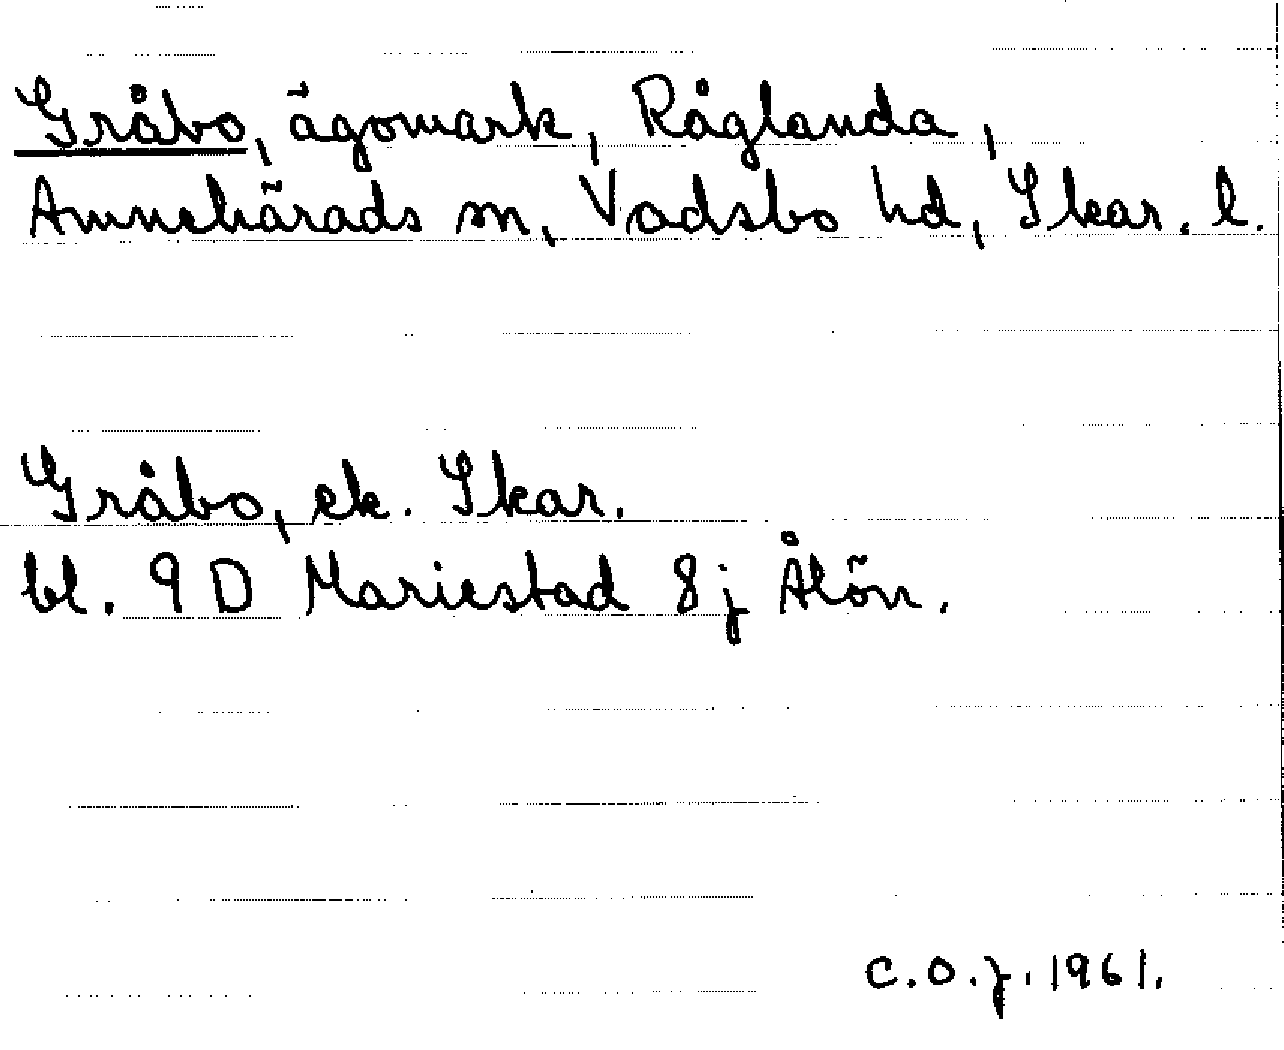 Gråbo, ägomark, Råglanda,
Amnehärads sn, Vadsbo hd, Skar. l.
Gråbo, ek. Skar.
bl. 9 D Mariestad 8j Ålön.
C.O.J. 1961.